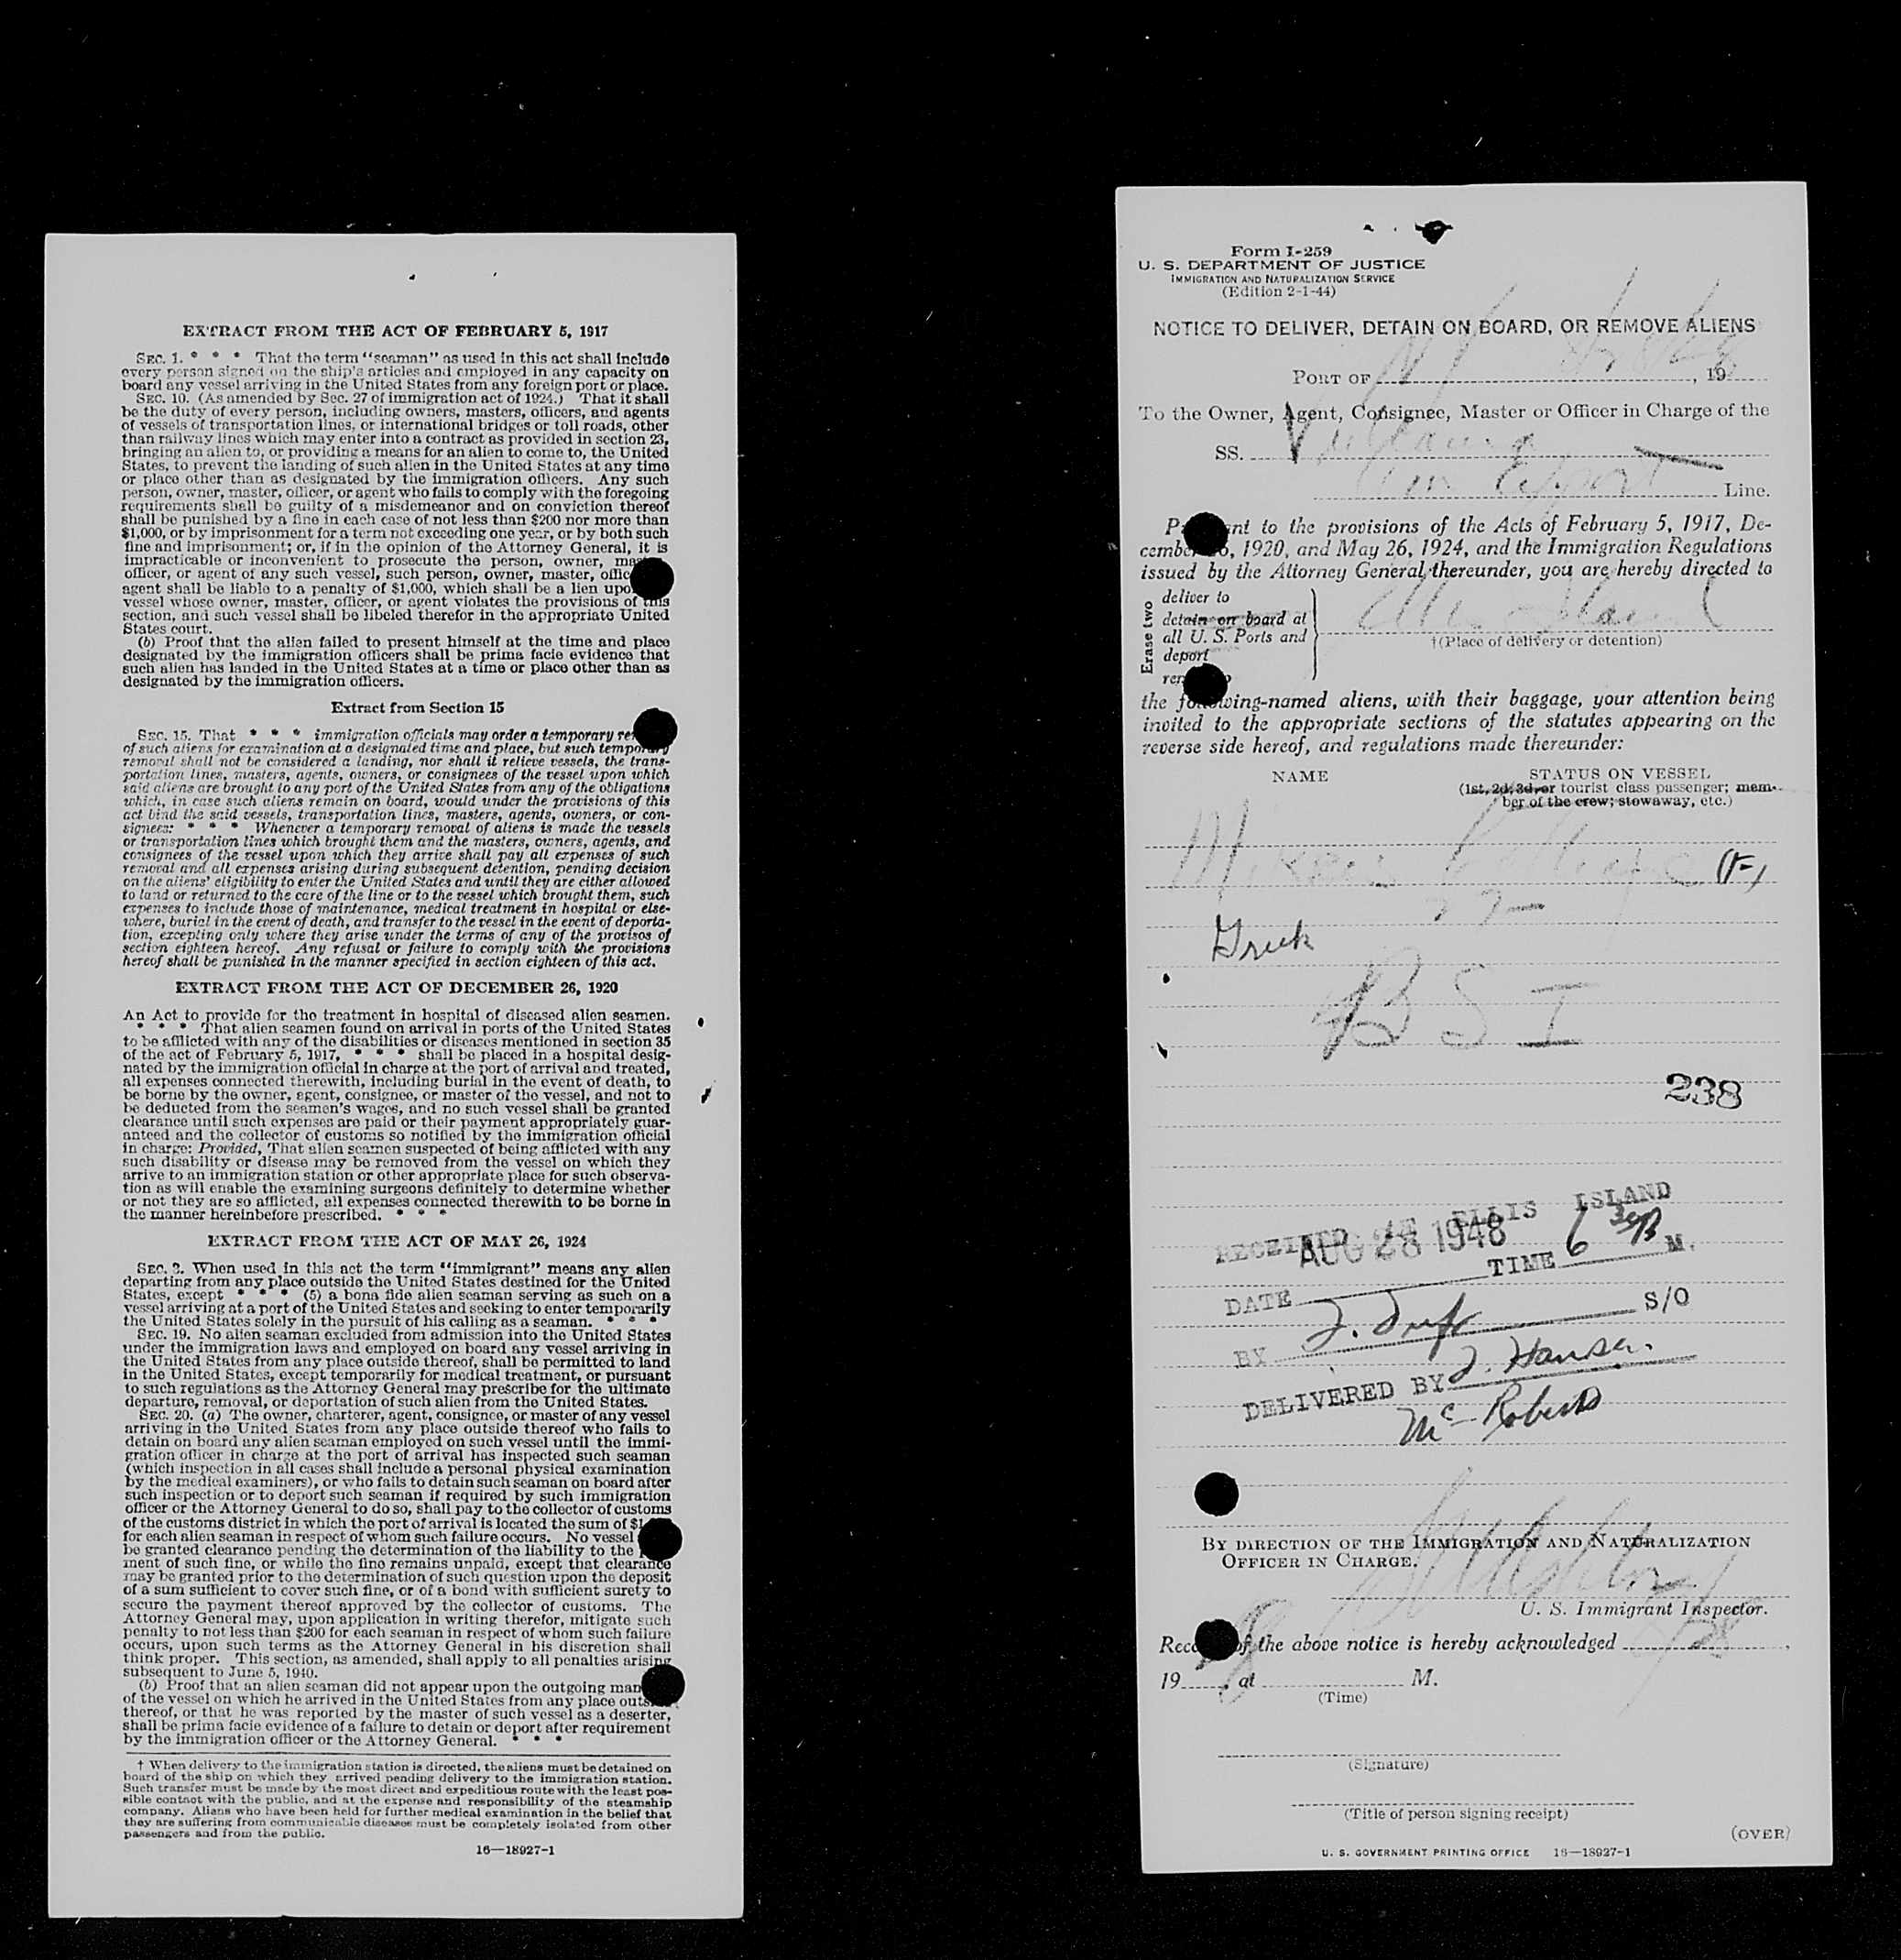 EXTRACT FROM THE ACT OF FEBRUARY 5, 1917
SEC. 1. * * * That the term "seaman" as used in this act shall include
every person signed on the ship's articles and employed in any capacity on
board any vessel arriving in the United States from any foreign port or place.
SEC. 10. (As amended by Sec. 27 of immigration act of 1924.) That it shall
be the duty of every person, including owners, masters, officers, and agents
of vessels of transportation lines, or international bridges or toll roads, other
than railway lines which may enter into a contract as provided in section 23,
bringing an alien to, or providing a means for an alien to come to, the United
States, to prevent the landing of such alien in the United States at any time
or place other than as designated by the immigration officers. Any such
person, owner, master, officer, or agent who fails to comply with the foregoing
requirements shall be guilty of a misdemeanor and on conviction thereof
shall be punished by a fine in each case of not less than $200 nor more than
$1,000, or by imprisonment for a term not exceeding one year, or by both such
fine and imprisonment; or, if in the opinion of the Attorney General, it is
impracticable or inconvenient to prosecute the person, owner,
officer, or agent of any such vessel, such person, owner, master,
agent shall be liable to a penalty of $1,000, which shall be a lien
vessel whose owner, master, officer, or agent violates the provisions of this
section, and such vessel shall be libeled therefor in the appropriate United
States court.
(b) Proof that the alien failed to present himself at the time and place
designated by the immigration officers shall be prima facie evidence that
such alien has landed in the United States at a time or place other than as
designated by the immigration officers.
Extract from Section 15
SEC. 15. That * * * immigration officials may order a temporary
of such aliens for examination at a designated time and place, but such temporary
removal shall not be considered a landing, nor shall it relieve vessels, the trans-
portation lines, masters, agents, owners, or consignees of the vessel upon which
said aliens are brought to any port of the United States from any of the obligations
which, in case such aliens remain on board, would under the provisions of this
act bind the said vessels, transportation lines, masters, agents, owners, or con-
signees: * * * Whenever a temporary removal of aliens is made the vessels
or transportation lines which brought them and the masters, owners, agents, and
consignees of the vessel upon which they arrive shall pay all expenses of such
removal and all expenses arising during subsequent detention, pending decision
on the aliens' eligibility to enter the United States and until they are either allowed
to land or returned to the care of the line or to the vessel which brought them, such
expenses to include those of maintenance, medical treatment in hospital or else-
where, burial in the event of death, and transfer to the vessel in the event of deporta-
tion, excepting only where they arise under the terms of any of the provisos of
section eighteen hereof. Any refusal or failure to comply with the provisions
hereof shall be punished in the manner specified in section eighteen of this act.
EXTRACT FROM THE ACT OF DECEMBER 26, 1920
An Act to provide for the treatment in hospital of diseased alien seamen.
* * * That alien seamen found on arrival in ports of the United States
to be afflicted with any of the disabilities or diseases mentioned in section 35
of the act of February 5, 1917, * * * shall be placed in a hospital desig-
nated by the immigration official in charge at the port of arrival and treated,
all expenses connected therewith, including burial in the event of death, to
be borne by the owner, agent, consignee, or master of the vessel, and not to
be deducted from the seamen's wages, and no such vessel shall be granted
clearance until such expenses are paid or their payment appropriately guar-
anteed and the collector of customs so notified by the immigration official
in charge: Provided, That alien seamen suspected of being afflicted with any
such disability or disease may be removed from the vessel on which they
arrive to an immigration station or other appropriate place for such observa-
tion as will enable the examining surgeons definitely to determine whether
or not they are so afflicted, all expenses connected therewith to be borne in
the manner hereinbefore prescribed. * * *
EXTRACT FROM THE ACT OF MAY 26, 1924
SEC. 3. When used in this act the term "immigrant" means any alien
departing from any place outside the United States destined for the United
States, except * * * (5) a bona fide alien seaman serving as such on a
vessel arriving at a port of the United States and seeking to enter temporarily
the United States solely in the pursuit of his calling as a seaman. * * *
SEC. 19. No alien seaman excluded from admission into the United States
under the immigration laws and employed on board any vessel arriving in
the United States from any place outside thereof, shall be permitted to land
in the United States, except temporarily for medical treatment, or pursuant
to such regulations as the Attorney General may prescribe for the ultimate
departure, removal, or deportation of such alien from the United States.
SEC. 20. (a) The owner, charterer, agent, consignee, or master of any vessel
arriving in the United States from any place outside thereof who fails to
detain on board any alien seaman employed on such vessel until the immi-
gration officer in charge at the port of arrival has inspected such seaman
(which inspection in all cases shall include a personal physical examination
by the medical examiners), or who fails to detain such seaman on board after
such inspection or to deport such seaman if required by such immigration
officer or the Attorney General to do so, shall pay to the collector of customs
of the customs district in which the port of arrival is located the sum of
for each alien seaman in respect of whom such failure occurs. No vessel
be granted clearance pending the determination of the liability to the
ment of such fine, or while the fine remains unpaid, except that clearance
may be granted prior to the determination of such question upon the deposit
of a sum sufficient to cover such fine, or of a bond with sufficient surety to
secure the payment thereof approved by the collector of customs. The
Attorney General may, upon application in writing therefor, mitigate such
penalty to not less than $200 for each seaman in respect of whom such failure
occurs, upon such terms as the Attorney General in his discretion shall
think proper. This section, as amended, shall apply to all penalties arising
subsequent to June 5, 1940.
(b) Proof that an alien seaman did not appear upon the outgoing
of the vessel on which he arrived in the United States from any place
thereof, or that he was reported by the master of such vessel as a deserter,
shall be prima facie evidence of a failure to detain or deport after requirement
by the immigration officer or the Attorney General. * * *
† When delivery to the immigration station is directed, the aliens must be detained on
board of the ship on which they arrived pending delivery to the immigration station.
Such transfer must be made by the most direct and expeditious route with the least pos-
sible contact with the public, and at the expense and responsibility of the steamship
company. Aliens who have been held for further medical examination in the belief that
they are suffering from communicable diseases must be completely isolated from other
passengers and from the public.
16—18927-1
Form I-259
U. S. DEPARTMENT OF JUSTICE
IMMIGRATION AND NATURALIZATION SERVICE
(Edition 2-1-44)
NOTICE TO DELIVER, DETAIN ON BOARD, OR REMOVE ALIENS
PORT OF NY, 19
To the Owner, Agent, Consignee, Master or Officer in Charge of the
SS. Vulcania
Am Export Line.
to the provisions of the Acts of February 5, 1917, De-
1920, and May 26, 1924, and the Immigration Regulations
issued by the Attorney General thereunder, you are hereby directed to
Erase two
deliver to
detain on board at
all U. S. Ports and
deport
Ellis Island
†(Place of delivery or detention)
the following-named aliens, with their baggage, your attention being
invited to the appropriate sections of the statutes appearing on the
reverse side hereof, and regulations made thereunder:
NAME STATUS ON VESSEL
(1st, 2d, 3d, or tourist class passenger; mem-
ber of the crew; stowaway, etc.)
(F)
Greek
BSI
238
RECEIVED AT ELLIS ISLAND
AUG 28 1948
DATE TIME 6 30 M.
BY S/O
DELIVERED BY J. Hansen
McRoberts
BY DIRECTION OF THE IMMIGRATION AND NATURALIZATION
OFFICER IN CHARGE.
U. S. Immigrant Inspector.
of the above notice is hereby acknowledged
19 , at M.
(Time)
(Signature)
(Title of person signing receipt)
(OVER)
U. S. GOVERNMENT PRINTING OFFICE 16—18927-1